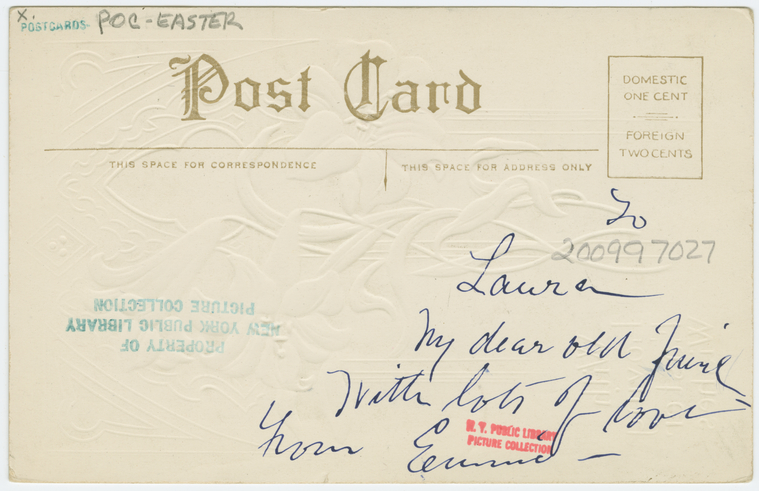 X.
POSTCARDS- POC-EASTER
Post Card
DOMESTIC
ONE CENT
FOREIGN
TWO CENTS
THIS SPACE FOR CORRESPONDENCE
THIS SPACE FOR ADDRESS ONLY
To
200997027
Laura
My dear old friend
With lots of love
from Emma
PROPERTY OF
NEW YORK PUBLIC LIBRARY
PICTURE COLLECTION
N. Y. PUBLIC LIBRARY
PICTURE COLLECTION